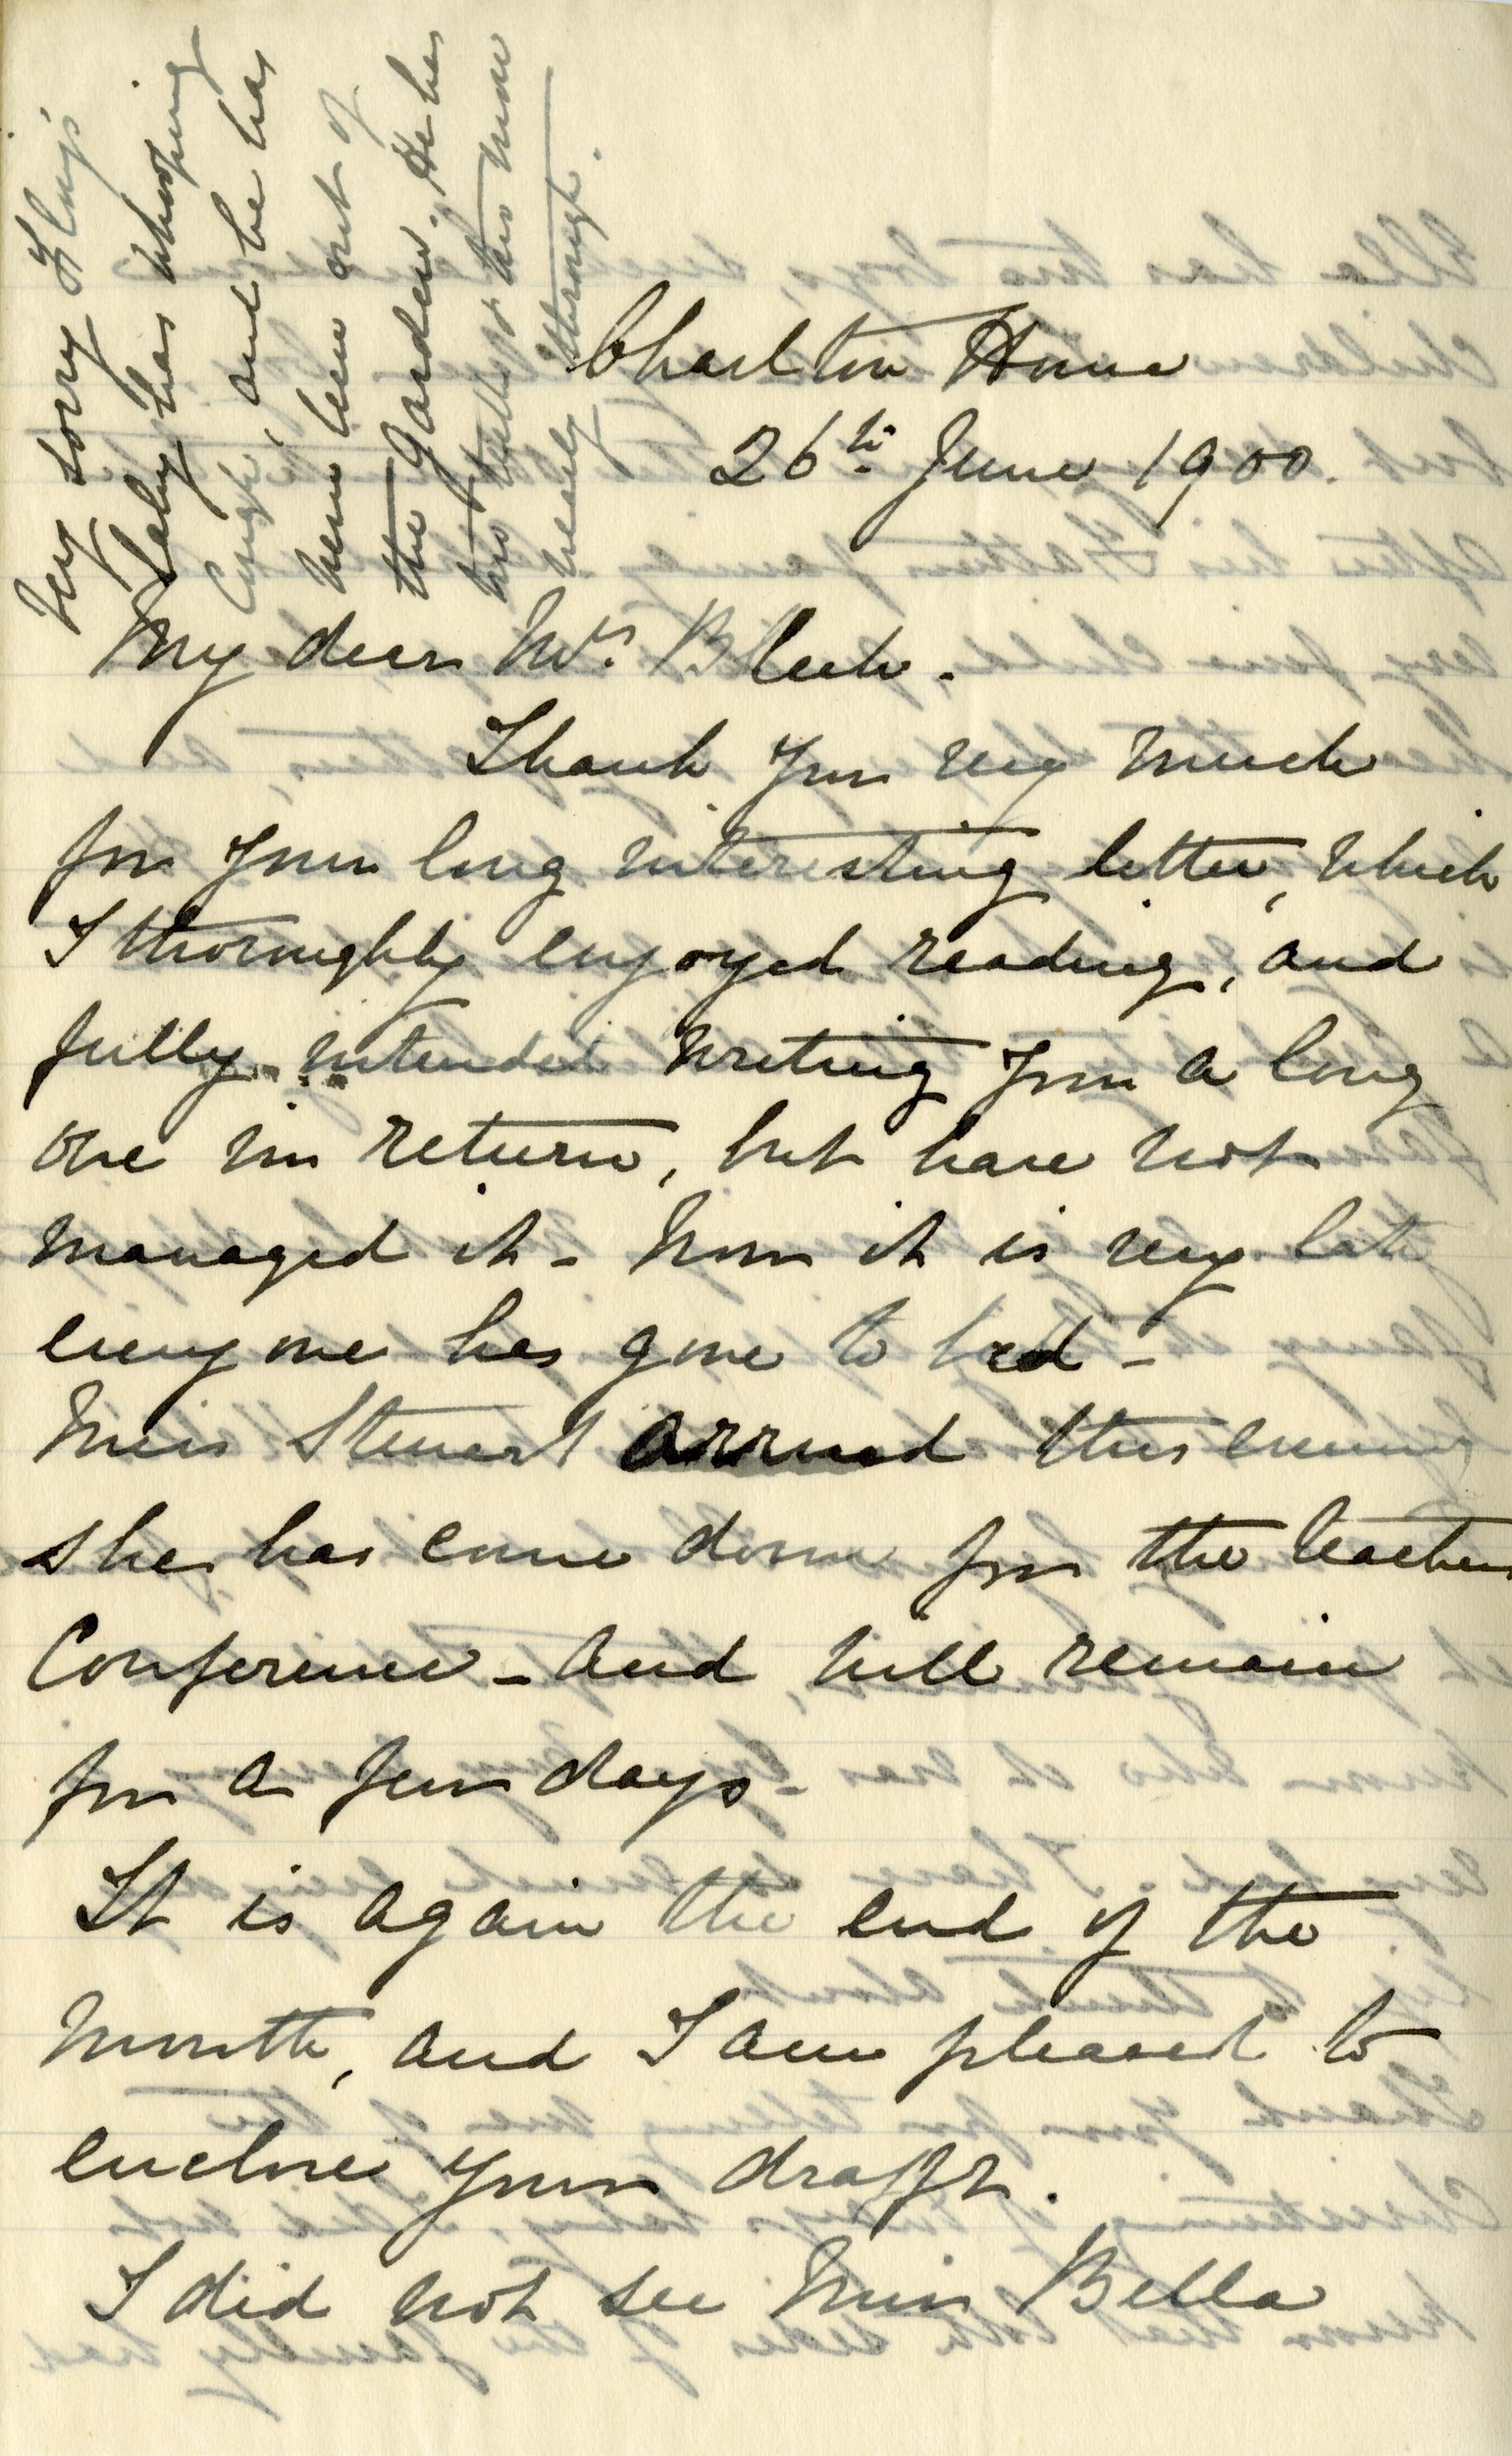 Charlton House
26th June 1900.
My dear Mrs. Bleek.
Thank you very much
for your long interesting letter, which
I thoroughly enjoyed reading, and
fully intended writing you a long
one in return, but have not
managed it - Now it is very late
every one has gone to bed -
Miss Stewart arrived this evening
she has come down for the Teachers
Conference - and will remain
for a few days -
It is again the end of the
month, and I am pleased to
enclose your draft.
I did not see Miss Bella
Very sorry
baby has whooping
cough, and he has
been out of
the garden. He has
two teeth & two more
nearly through.